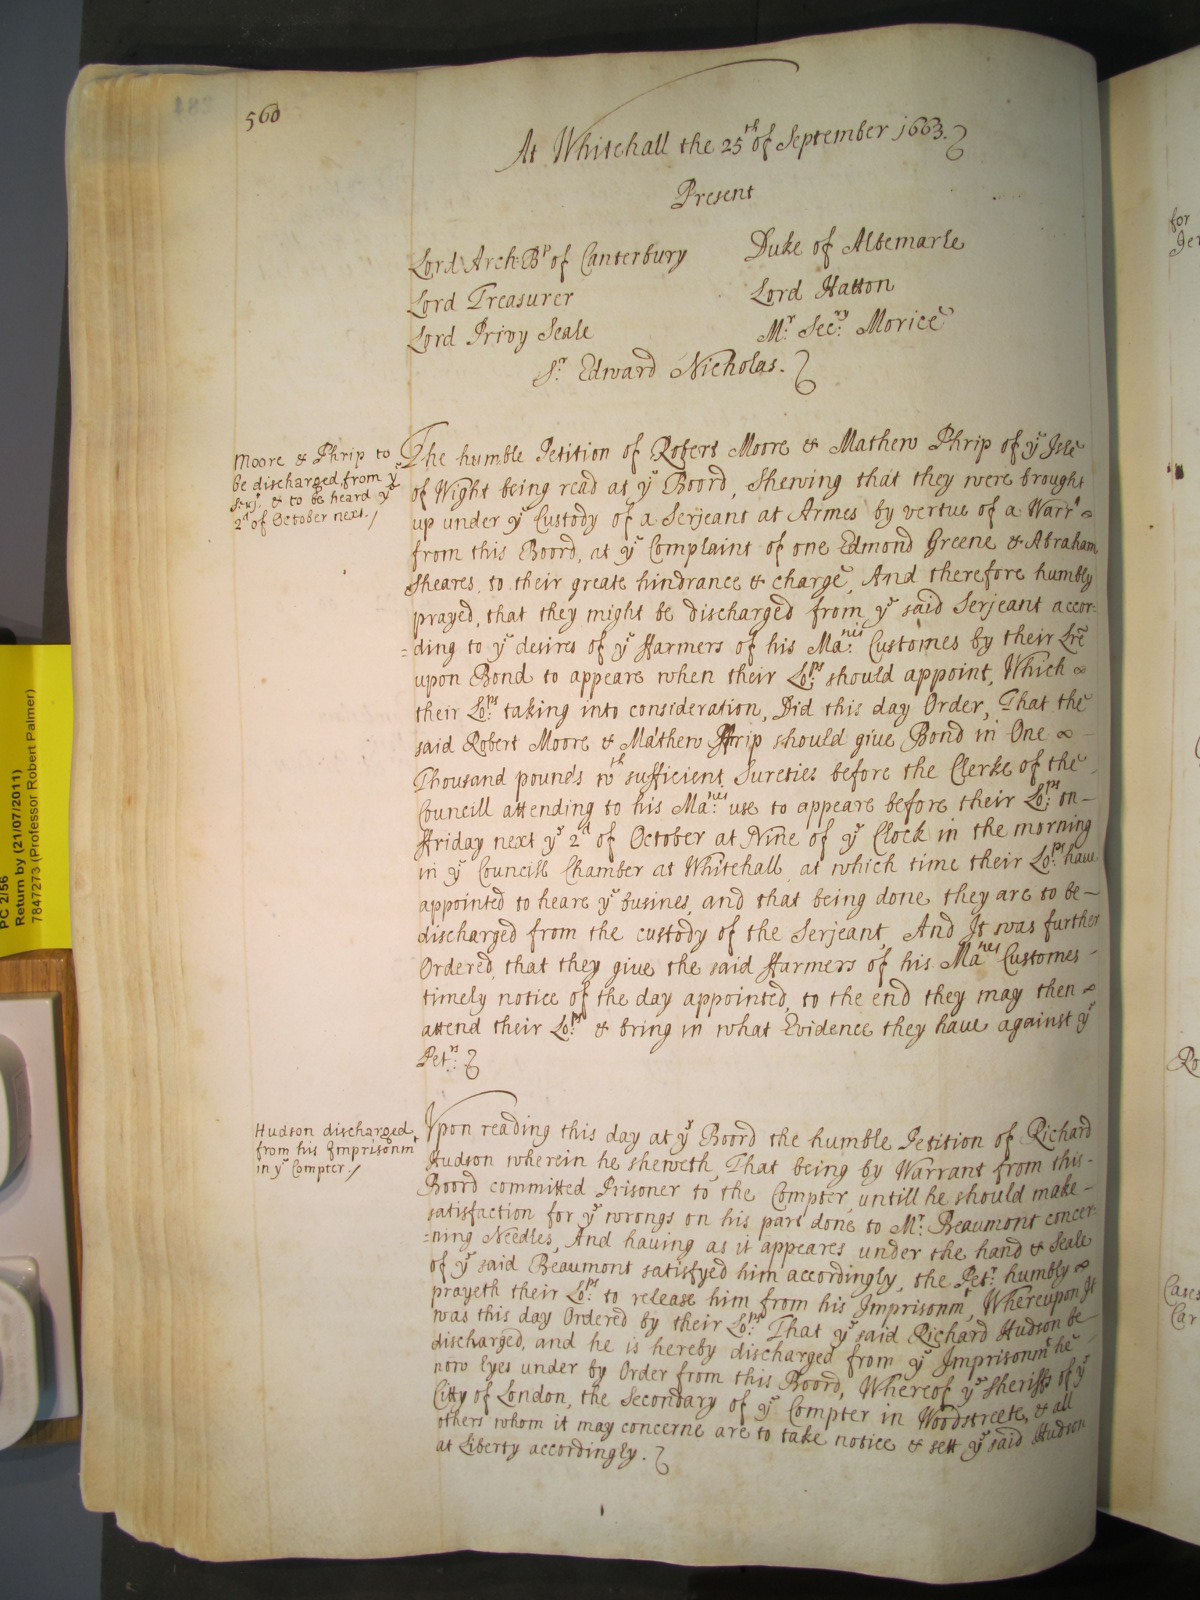 560
At Whitehall the 25th of September 1663.
Present
Lord Arch Bp of Canterbury
Duke of Albemarle
Lord Treasurer
Lord Hatton
Lord Privy Seale
Mr. Secry. Morice
Sr. Edward Nicholas.
Moore & Phrip to
be discharged from ye
Serjt. & to be heard ye
2d of October next./
The humble Petition of Robert Moore & Mathew Phrip of ye Isle
of Wight being read at ye Boord, Shewing that they were brought
up under ye Custody of a Serjeant at Armes by vertue of a Warrt
from this Boord, at ye Complaint of one Edmond Greene & Abraham
Sheares, to their greate hindrance & charge, And therefore humbly
prayed, that they might be discharged from ye said Serjeant accor:
=ding to ye desires of ye ffarmers of his Ma:ties Customes by their Lre
upon Bond to appeare when their Lo:ps should appoint, Which
their Lo:ps taking into consideration, Did this day Order, That the
said Robert Moore & Mathew Phrip should give Bond in One
Thousand pounds wth sufficient Sureties before the Clerke of the
Councill attending to his Ma:ties use to appeare before their Lo:ps on
ffriday next ye 2d of October at Nine of ye Clock in the morning
in ye Councill Chamber at Whitehall, at which time their Lo:ps have
appointed to heare ye busines, and that being done they are to be
discharged from the custody of the Serjeant, And It was further
Ordered, that they give the said ffarmers of his Maties Customes
timely notice of the day appointed, to the end they may then
attend their Lo:ps & bring in what Evidence they have against ye
Petrs:
Hudson discharged
from his Imprisonmt
in ye Compter./
Upon reading this day at ye Boord the humble Petition of Richard
Hudson wherein he sheweth, That being by Warrant from this
Boord committed Prisoner to the Compter, untill he should make
satisfaction for ye wrongs on his part done to Mr. Beaumont concer:
=ning Needles, And having as it appeares under the hand & Seale
of ye said Beaumont satisfyed him accordingly, the Petr. humbly
prayeth their Lo:ps to release him from his Imprisonmt, Whereupon It
was this day Ordered by their Lo:ps That ye said Richard Hudson be
discharged, and he is hereby discharged from ye Imprisonmt he
now lyes under by Order from this Boord, Whereof ye Sheriffs of ye
Citty of London, the Secondary of ye Compter in Woodstreete, & all
others whom it may concerne are to take notice & sett ye said Hudson
at Liberty accordingly.
PC 2/56
Return by (21/07/2011)
7847273 (Professor Robert Palmer)
for